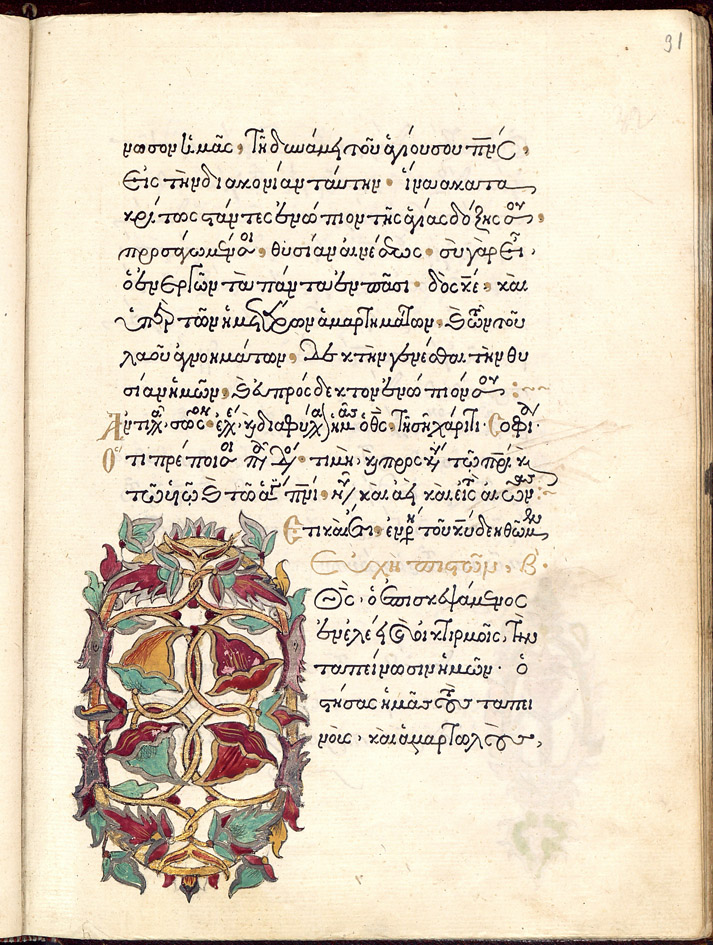 91
νωσον ἡμᾶς, τῇ δυνάμει τοῦ ἁγίου σου πνς,
εἰς τὴν διακονίαν ταύτην· ἵνα ἀκατα
κρίτως στάντες ἐνώπιον τῆς ἁγίας δόξης σου,
προσάγωμέν σοι, θυσίαν αἰνέσεως· σὺ γὰρ εἶ
ὁ ἐνεργῶν τὰ πάντα ἐν πᾶσι· δὸς κε, καὶ
ὑπὲρ τῶν ἡμετέρων ἁμαρτημάτων, καὶ τῶν τοῦ
λαοῦ ἀγνοημάτων, δεκτὴν γενέσθαι τὴν θυ
σίαν ἡμῶν, καὶ εὐπρόσδεκτον ἐνώπιόν σου
Ἀντιλαβοῦ· σῶσον· ἐλέησον· καὶ διαφύλαξον ἡμᾶς ὁ θς· τῇ σῇ χάριτι· Σοφία·
Ὅτι πρέπει σοι πᾶσα δόξα· τιμὴ· καὶ προσκύνησις τῷ πρὶ· καὶ
τῷ υἱῷ καὶ τῷ ἁγίῳ πνι· νῦν καὶ ἀεὶ καὶ εἰς τοὺς αἰῶνας
Ἔτι καὶ ἔτι· ἐν εἰρήνῃ τοῦ κυ δεηθῶμεν
Εὐχὴ πιστῶν· Β·
Ὁ θς· ὁ ἐπισκεψάμενος
ἐν ἐλέει καὶ οἰκτιρμοῖς, τὴν
ταπείνωσιν ἡμῶν· ὁ
στήσας ἡμᾶς τοὺς ταπει
νοὺς· καὶ ἁμαρτωλοὺς,